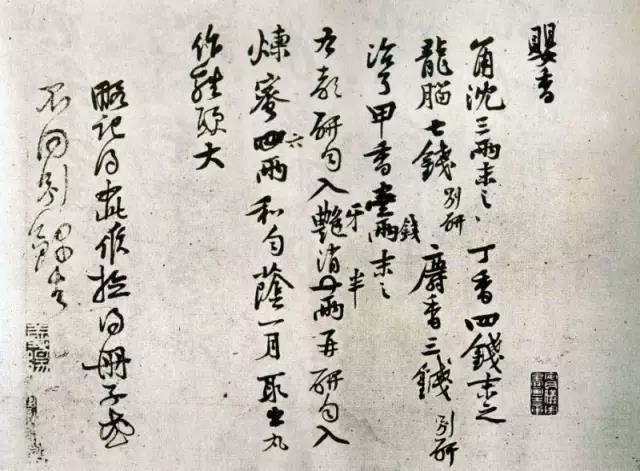 嬰香
角沈三兩末之 丁香四錢末之
龍腦七錢別研 麝香三錢別研
治了甲香壹兩錢末之
右都研勻入艷消半兩再研勻入牙半
煉蜜四兩六和勻蔭一月取出丸
作雞頭大
略記得此候檢得冊子或
不同別錄去